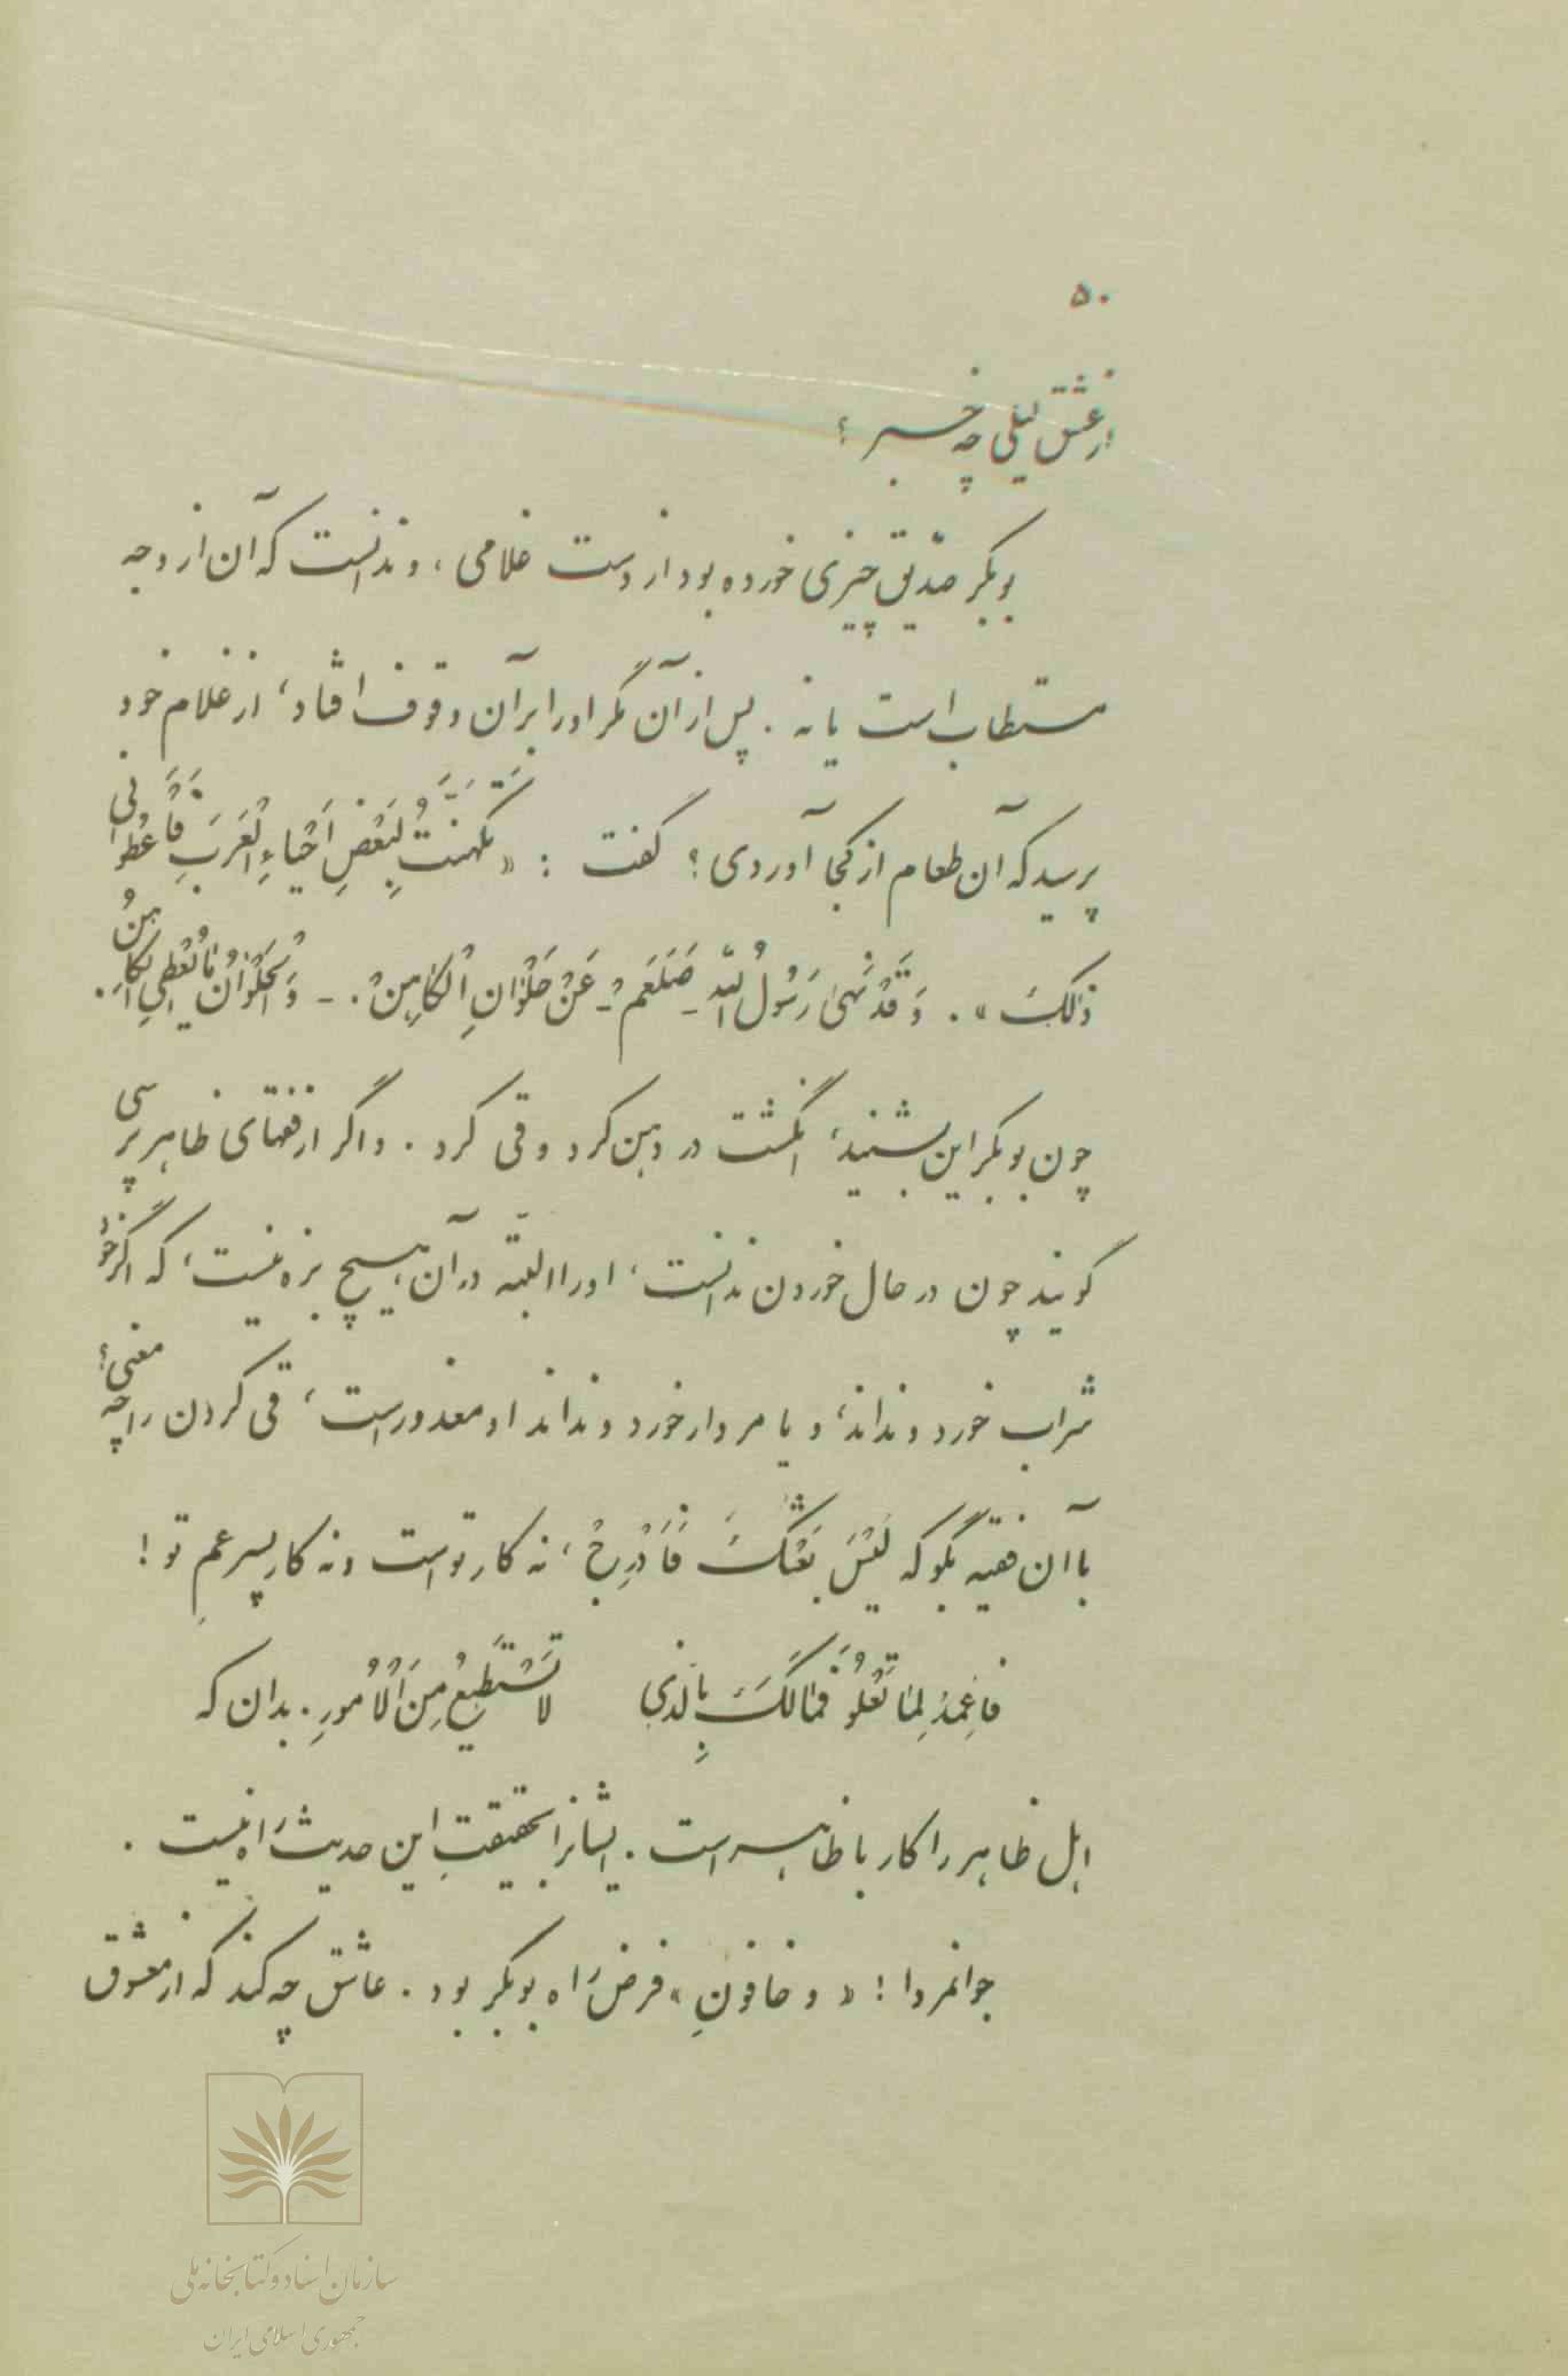 ۵۰
از عشق لیلی چه خبر ؟
بوبکر صدّیق چیزی خورده بود از دست غلامی ، و ندانست که آن از وجه
مستطاب است یا نه . پس از آن مگر او را بر آن وقوف افتاد ، از غلام خود
پرسید که آن طعام از کجا آوردی ؟ گفت : « تَکَهَّنْتُ لِبَعْضِ اَحْیاءِ الْعَرَبِ فَاَعْطَوْانی
ذٰلِکَ » . وَ قَدْ نَهیٰ رَسُولُ اللّهِ ـ صَلَعَمْ ـ عَنْ حَلْوٰانِ الْکٰاهِنْ . ـ وَ الْحَلْوٰانُ مٰا یُعْطِی الْکٰاهِنُ .
چون بوبکر این بشنید ، انگشت در دهن کرد و قی کرد . و اگر از فقهای ظاهر پرسی
گویند چون در حال خوردن ندانست ، او را البتّه در آن هیچ بزه نیست ، که اگر خود
شراب خورد و نداند ، و یا مردار خورد و نداند او معذور است ، قی کردن را چه معنی ؟
با آن فقیه بگو که لَیْسَ بَعُشِّکَ فَاَدْرِجْ ، نه کار تو است و نه کار پسر عمِ تو !
فَاعْمِدْ لِمٰا تَعْلُوُ فَمٰالَکَ بِالَّذی لا تَسْتَطیعُ مِنَ الْاُمُورِ . بدان که
اهل ظاهر را کار با ظاهر است . ایشانرا بحقیقتِ این حدیث راه نیست .
جوانمردا ! « و خافونِ » فرض راه بوبکر بود . عاشق چه کند که از معشوق
سازمان اسناد و کتابخانه ملی
جمهوری اسلامی ایران